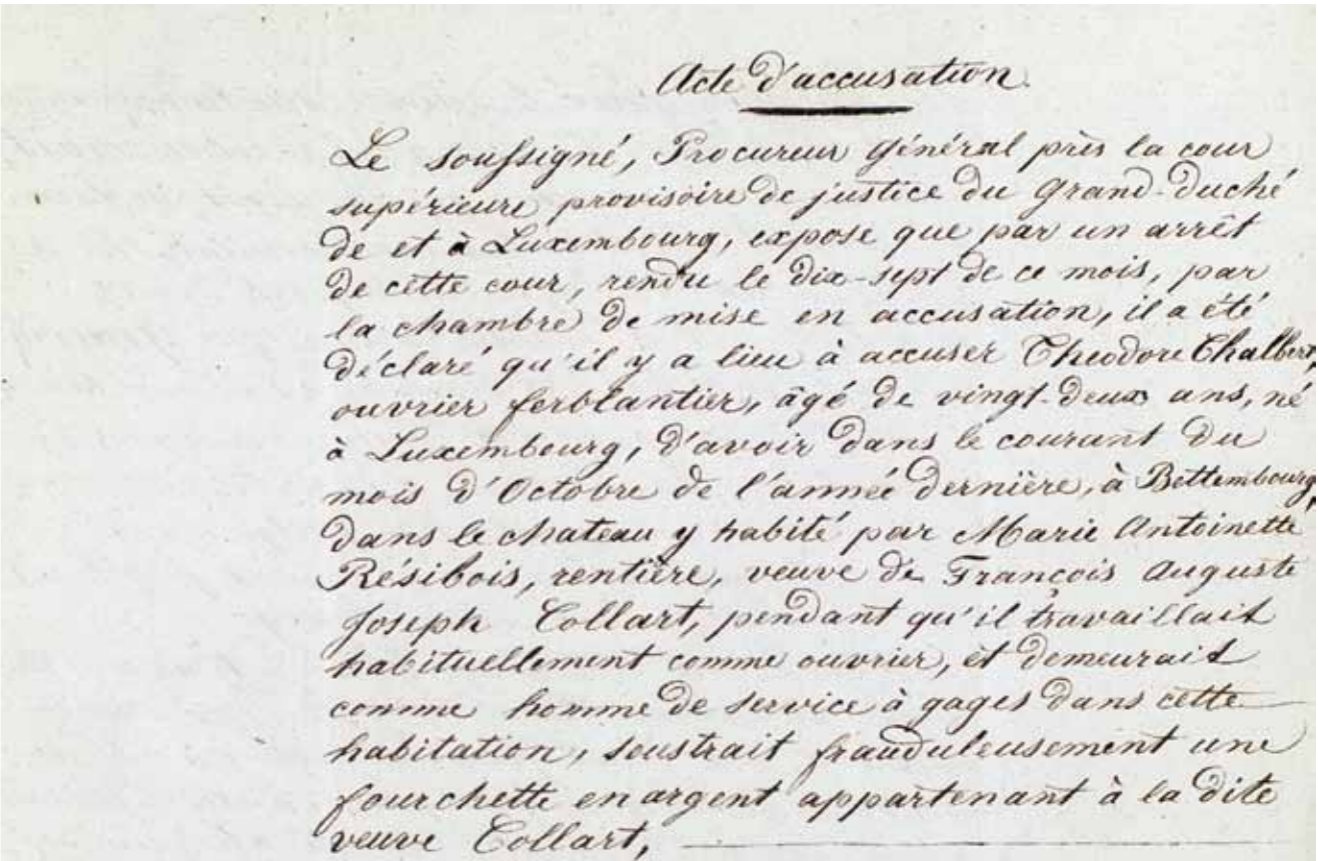 Acte d'accusation.
Le soussigné, Procureur général près la cour
supérieure provisoire de justice du grand-Duché
de et à Luxembourg, expose que par un arrêt
de cette cour, rendu le dix-sept de ce mois, par
la chambre de mise en accusation, il a été
déclaré qu'il y a lieu à accuser Théodore Chalbert,
ouvrier ferblantier, âgé de vingt-deux ans, né
à Luxembourg, d'avoir dans le courant du
mois d'Octobre de l'année dernière, à Bettembourg,
dans le chateau y habité par Marie Antoinette
Résibois, rentière, veuve de François Auguste
Joseph Collart, pendant qu'il travaillait
habituellement comme ouvrier, et demeurait
comme homme de service à gages dans cette
habitation, soustrait frauduleusement une
fourchette en argent appartenant à la dite
veuve Collart,